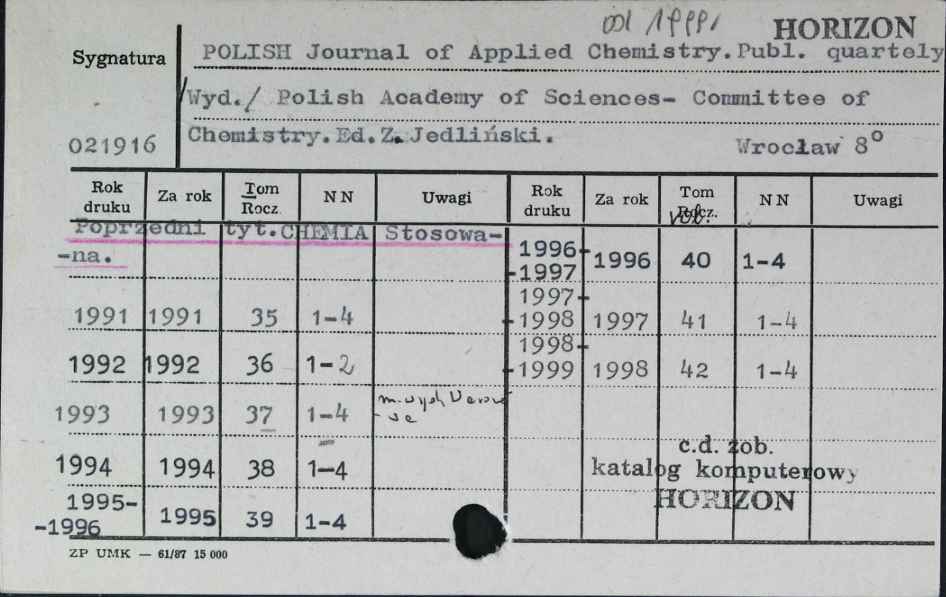 od 1999r HORIZON
Sygnatura POLISH Journal of Applied Chemistry. Publ. quartely
Wyd./ Polish Academy of Sciences- Committee of
021916 Chemistry. Ed. Z. Jedliński. Wrocław 8°
Rok druku Za rok Tom Rocz. NN Uwagi Rok druku Za rok Tom Rocz. vol. NN Uwagi
Poprzedni tyt. CHEMIA Stosowa-
-na. 1996-
-1997 1996 40 1-4
1991 1991 35 1-4 1997-
-1998 1997 41 1-4
1992 1992 36 1-2 1998-
-1999 1998 42 1-4
1993 1993 37 1-4 m. wyd.
1994 1994 38 1-4 c.d. zob.
katalog komputerowy
1995-
-1996 1995 39 1-4 HORIZON
ZP UMK — 61/87 15 000